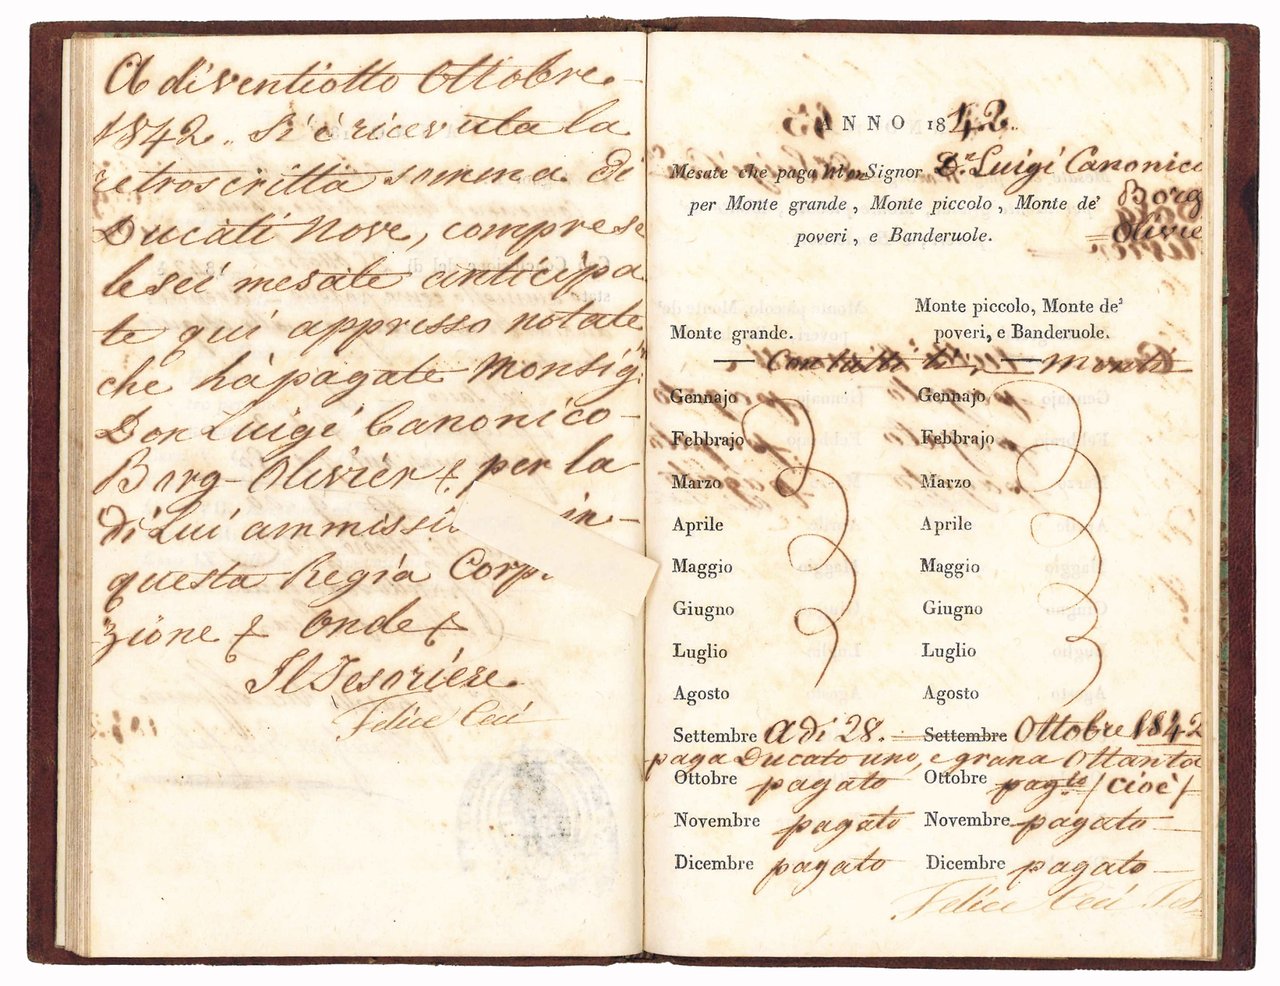 A di ventiotto Ottobre
1842.. Si è ricevuta la
retroscritta somma di
Ducati Nove, comprese
le sei mesate anticipa
te qui appresso notate
che hà pagate Monsig.r
Don Luigi Canonico
Borg-Olivier per la
di Lui ammissi in-
questa Regia Corp.
zione Onde
Il Tesoriere
Felice Ceci
ANNO 1842..
Mesate che paga Mon Signor D.n Luigi Canonico
per Monte grande, Monte piccolo, Monte de' Borg
poveri, e Banderuole. =Olivie
Monte grande.
Monte piccolo, Monte de'
poveri, e Banderuole.
— Con tutti ti, — Monti
Gennajo Gennajo
Febbrajo Febbrajo
Marzo Marzo
Aprile Aprile
Maggio Maggio
Giugno Giugno
Luglio Luglio
Agosto Agosto
Settembre A di 28. — Settembre Ottobre 1842
paga Ducato uno, e grana Ottanta
Ottobre pagato Ottobre pag.to / cioè /
Novembre pagato Novembre pagato
Dicembre pagato Dicembre pagato
Felice Ceci Tes